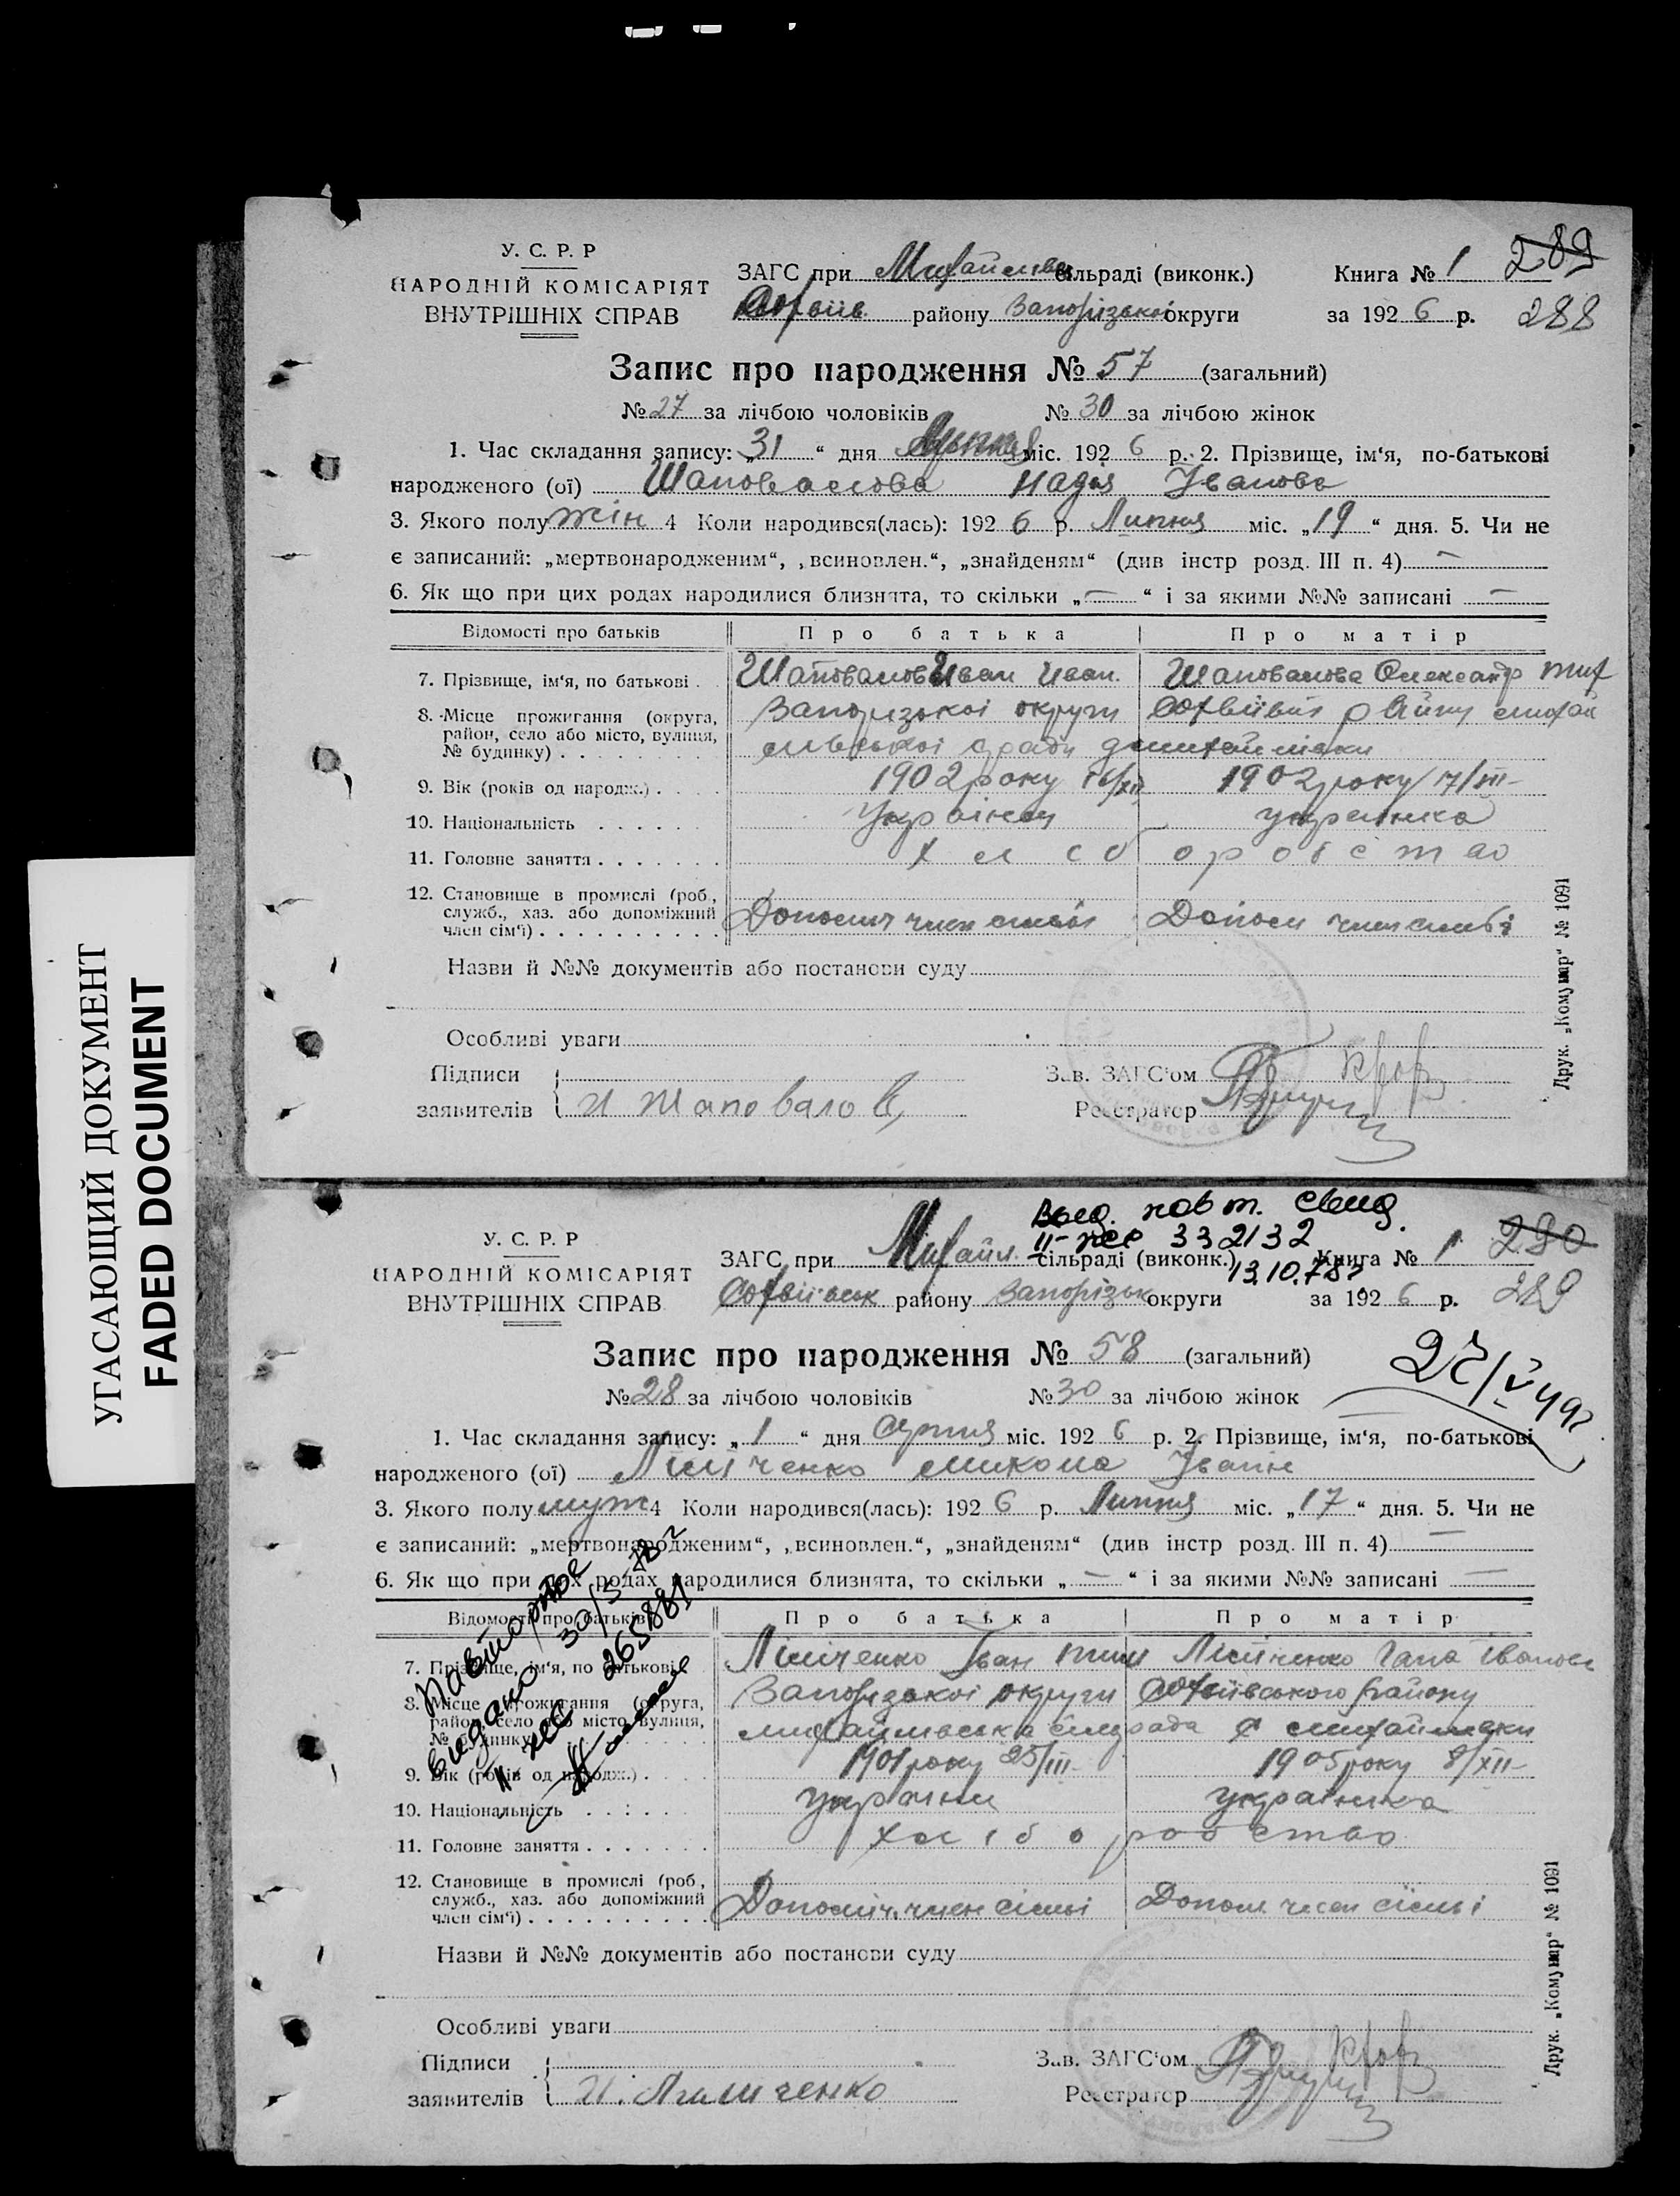 УГАСАЮЩИЙ ДОКУМЕНТ
FADED DOCUMENT
У. С. Р. Р
НАРОДНІЙ КОМІСАРІЯТ
ВНУТРІШНІХ СПРАВ
ЗАГС при Михайлівс сільраді (виконк.)
Софіїв. району Запорізької округи
Книга № 1 289
за 1926 р. 288
Запис про народження № 57 (загальний)
№ 27 за лічбою чоловіків № 30 за лічбою жінок
1. Час складання запису: „31“ дня Липня міс. 1926 р. 2. Прізвище, ім‘я, по-батькові
народженого (ої) Шаповалова Надія Іванова
3. Якого полу жін 4 Коли народився(лась): 1926 р. Липня міс. „19“ дня. 5. Чи не
є записаний: „мертвонародженим“, „всиновлен.“, „знайденям“ (див інстр розд. III п. 4) —
6. Як що при цих родах народилися близнята, то скільки „—“ і за якими №№ записані —
Відомості про батьків Про батька Про матір
7. Прізвище, ім‘я, по батькові . Шаповалов Иван Иван. Шаповалова Олександр
8. Місце прожигання (округа, Запорізької округи
район, село або місто, вулиця,
№ будинку) . . . . . . . .
9. Вік (років од народж.) . . . . 1902 року 1902 року
10. Національність . . . . . . українец українка
11. Головне заняття . . . . . . . хліборобство
12. Становище в промислі (роб.,
служб., хаз. або допоміжний
член сім‘ї) . . . . . . . . . . Допоміч член сімьї Допом член сімьї
Назви й №№ документів або постанови суду
Особливі уваги
Підписи
заявителів И Шаповалов
Зав. ЗАГС‘ом
Реєстратор
Друк. „Комунар“ № 1091
Выд. повт. свид.
332132
13.10.78
У. С. Р. Р
НАРОДНІЙ КОМІСАРІЯТ
ВНУТРІШНІХ СПРАВ
ЗАГС при Михайл. сільраді (виконк.)
Софіївськ району Запорізьк округи
Книга № 1 290
за 1926 р. 289
Запис про народження № 58 (загальний)
№ 28 за лічбою чоловіків № 30 за лічбою жінок
1. Час складання запису: „1“ дня серпня міс. 1926 р. 2. Прізвище, ім‘я, по-батькові
народженого (ої) Микола Іван
3. Якого полу муж 4 Коли народився(лась): 1926 р. Липня міс. „17“ дня. 5. Чи не
є записаний: „мертвонародженим“, „всиновлен.“, „знайденям“ (див інстр розд. III п. 4) —
6. Як що при цих родах народилися близнята, то скільки „—“ і за якими №№ записані —
Повторное
265881
Відомості про батьків Про батька Про матір
7. Прізвище, ім‘я, по батькові . Іван Іванов
8. Місце прожигання (округа, Запорізької округи Софіївського району
район, село або місто, вулиця, Михайлівська сільрада с Михайлівки
№ будинку) . . . . . . . .
9. Вік (років од народж.) . 1901 року 25/III 1905 року 8/XII
10. Національність . . : . . українец українка
11. Головне заняття . . . . . . . хліборобство
12. Становище в промислі (роб.,
служб., хаз. або допоміжний
член сім‘ї) . . . . . . . . . . Допоміч. член сімьї Допом член сімьї
Назви й №№ документів або постанови суду
Особливі уваги
Підписи
заявителів
Зав. ЗАГС‘ом
Реєстратор
Друк. „Комунар“ № 1091